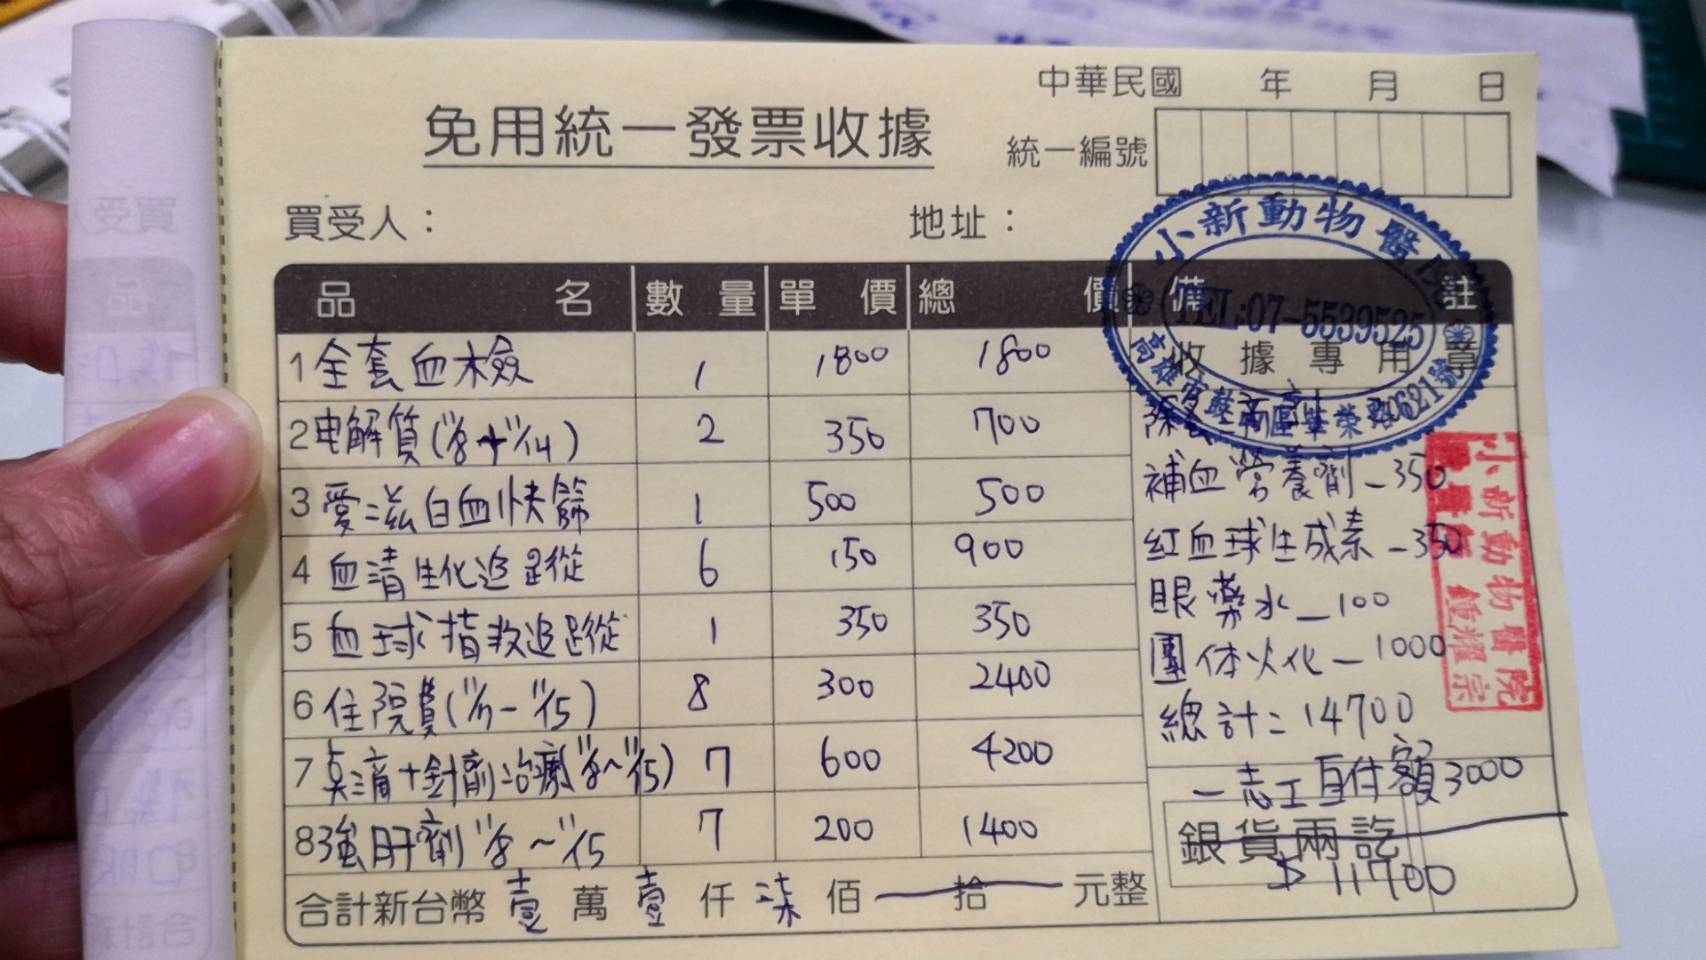 中華民國 年 月 日
免用統一發票收據
統一編號
買受人：
地址：
小新動物醫院
TEL:07-5539525
高雄市鼓山區華榮路621號
品名 數量 單價 總價 備註
收據專用章
1 全套血檢 1 1800 1800
2 电解質(11/8+11/14) 2 350 700
3 愛滋白血快篩 1 500 500
4 血清生化追蹤 6 150 900
5 血球指数追蹤 1 350 350
6 住院費(11/7-11/15) 8 300 2400
7 点滴+針劑治療(11/8~11/15) 7 600 4200
8 強肝劑 11/8~11/15 7 200 1400
補血營養劑-350
紅血球生成素-350
眼藥水-100
團体火化-1000
總計=14700
-志工自付額3000
銀貨兩訖
$11700
小新動物醫院
鍾耀宗
合計新台幣 壹 萬 壹 仟 柒 佰 拾 元整